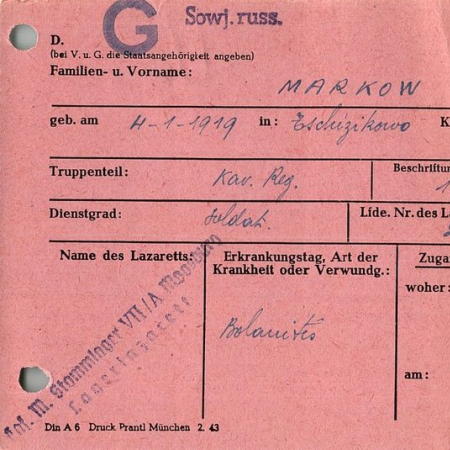 G Sowj. russ.
D.
(bei V. u. G. die Staatsangehörigkeit angeben)
Familien- u. Vorname:
MARKOW
geb. am 4-1-1919 in: Tschizikowo K
Truppenteil: Kav. Reg. Beschriftu
1
Dienstgrad: Soldat. Lfde. Nr. des L
Name des Lazaretts: Erkrankungstag, Art der Zuga
Krankheit oder Verwundg.:
woher:
Bolanitis
am:
M. Stammlager VII/A Moosburg
Lagerlazarett
Din A 6 Druck Prantl München 2. 43